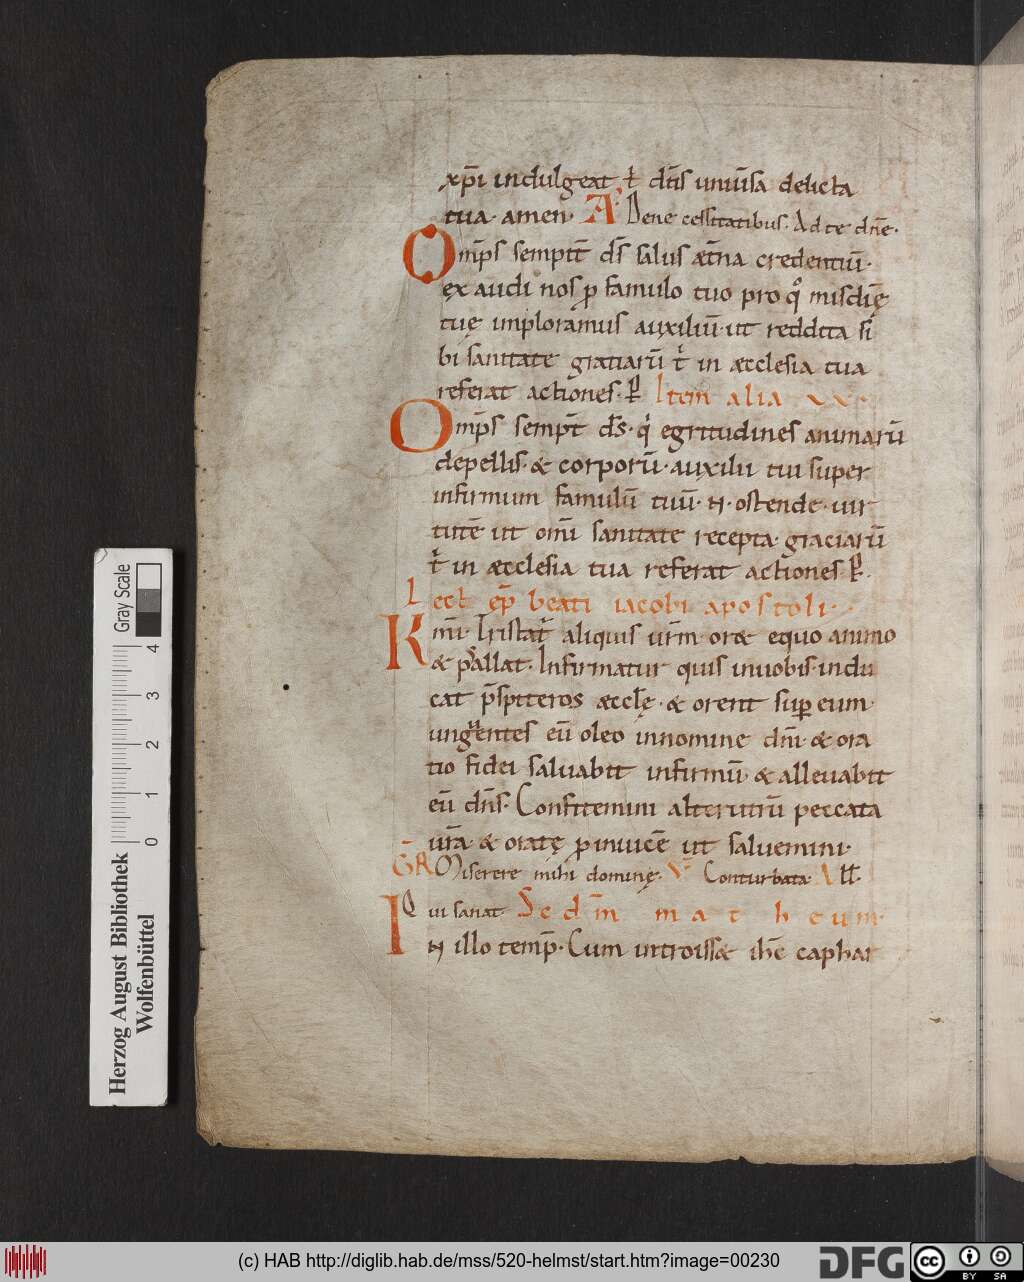 xp̄i indulgeat t̄ dn̄s uniūsa delicta
tua· amen̄· A̓ Dene cessitatibus· Ad te dn̄e·
Om̄ps sempit̄ ds̄ salus æt̄na credentiū·
exaudi nos p famulo tuo pro qͦ mis̄dię
tuę imploramus auxiliū· ut reddita si
bi sanitate gratiarū t̓ in æcclesia tua
referat actiones· p̄ Item alia
Om̄ps semp̄t d̄s· q̓ egritudines animarū
depellis· & corporū· auxilii tui super
infirmum famulū tuū· N· ostende· uir
tutē ut om̄i sanitate recepta· graciarū
t̓ in æcclesia tua referat actiones· p̄·
Lect̄ ep̄ beati iacobi apostoli·
Km̄i· Tristat̓ aliquis ur̄m oræ equo animo
& psallat· Infirmatur quis inuobis· indu
cat p̄sbiteros æccl̄ę· & orent sup eum·
ungentes eū oleo innomine dn̄i· & ora
tio fidei saluabit infirmū· & alleuabit
eū dn̄s· Confitemini alterutrū peccata
ur̄a· & oratę pinuicē ut saluemini·
GR Miserere mihi dominę· V̄ Conturbata Alł·
Qui sanat· Scd̄m matheum·
IN illo temp̄· Cum introisset ih̄c caphar
Gray Scale
0 1 2 3 4
Herzog August Bibliothek
Wolfenbüttel
(c) HAB http://diglib.hab.de/mss/520-helmst/start.htm?image=00230
DFG
cc BY SA